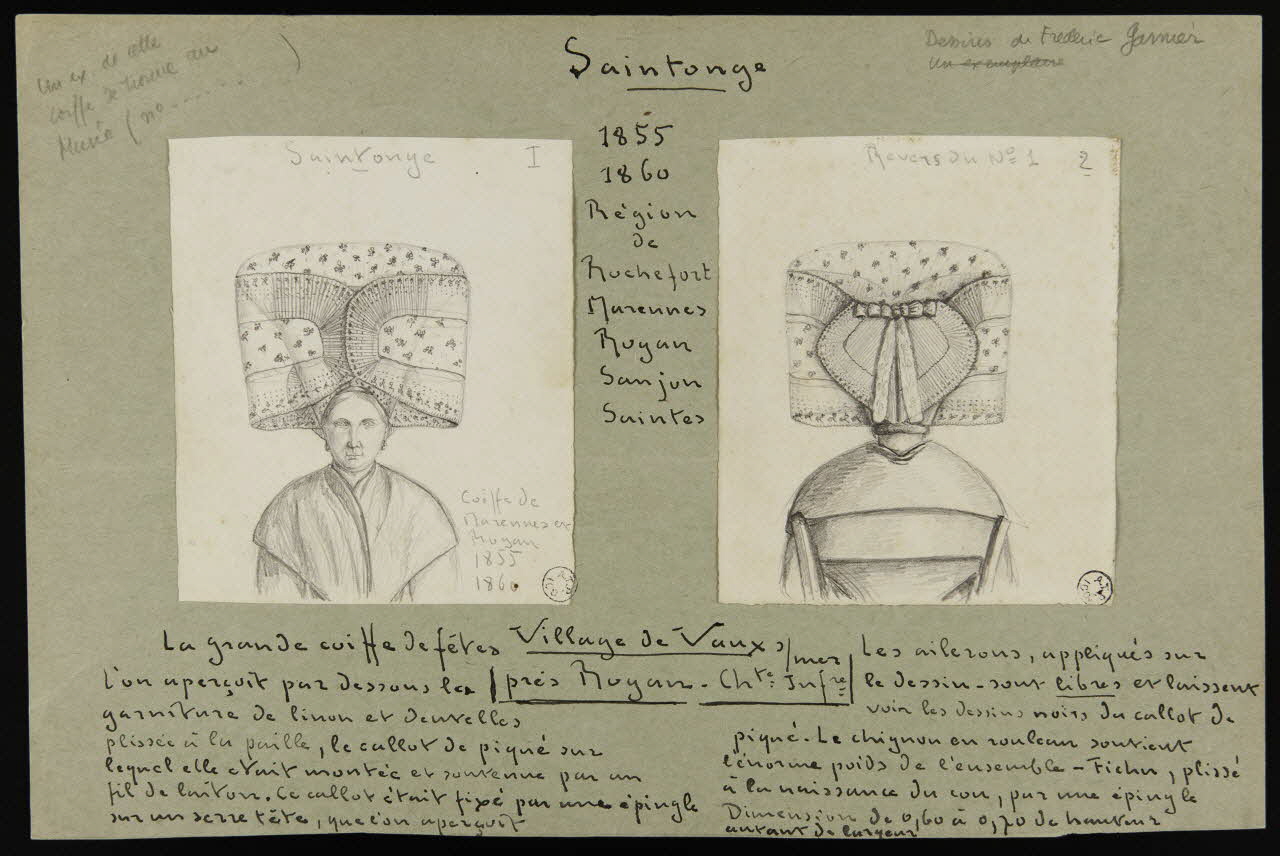 Un ex. de cette
coiffe se trouve au
Musée (no ...... )
Dessins de Frédéric Garnier
Un exemplaire
Saintonge
1855
1860
Région
de
Rochefort
Marennes
Royan
Saujon
Saintes
Saintonge I
Coiffe de
Marennes et
Royan
1855
1860
Revers du No 1 2
La grande coiffe de fêtes
l'on aperçoit par dessous la
garniture de linon et dentelles
plissée à la paille, le callot de piqué sur
lequel elle était montée et soutenue par un
fil de laiton. Ce callot était fixé par une épingle
sur un serre tête, que l'on aperçoit
Village de Vaux s/mer
près Royan - Chte Infre
Les ailerons, appliqués sur
le dessin - sont libres et laissent
voir les dessins noirs du callot de
piqué. Le chignon en rouleau soutient
l'énorme poids de l'ensemble - Fichu, plissé
à la naissance du cou, par une épingle
Dimension de 0,60 à 0,70 de hauteur
autant de largeur